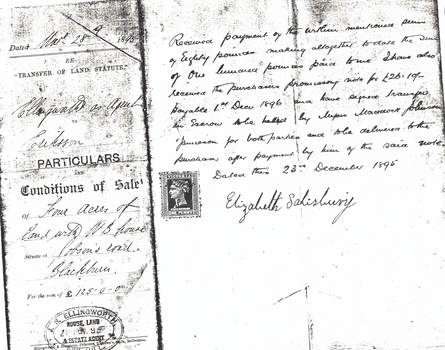 Dated Nov. 28th 1895
RE
"TRANSFER OF LAND STATUTE."
Ellingworth as Agent
to
Erikson
PARTICULARS
AND
Conditions of Sale
Of Four Acres of
land with WB house
Situate at Jobson's road
Blackburn.
For the sum of £ 125-0-0
ELLINGWORTH
HOUSE, LAND
& ESTATE AGENT
Received payment of the within mentioned sum
of Eighty pounds making altogether to date the sum
of One hundred pounds paid to me I have also
received the purchasers promissory note for £26.10/-
payable 1st Dec 1896 and have signed transfer
in Escrow to be held by Messrs Maddock Johnson
Jamieson for both parties and to be delivered to the
purchaser after payment by him of the said note
Dated this 23rd December 1895
VICTORIA
ONE PENNY
Elizabeth Salisbury